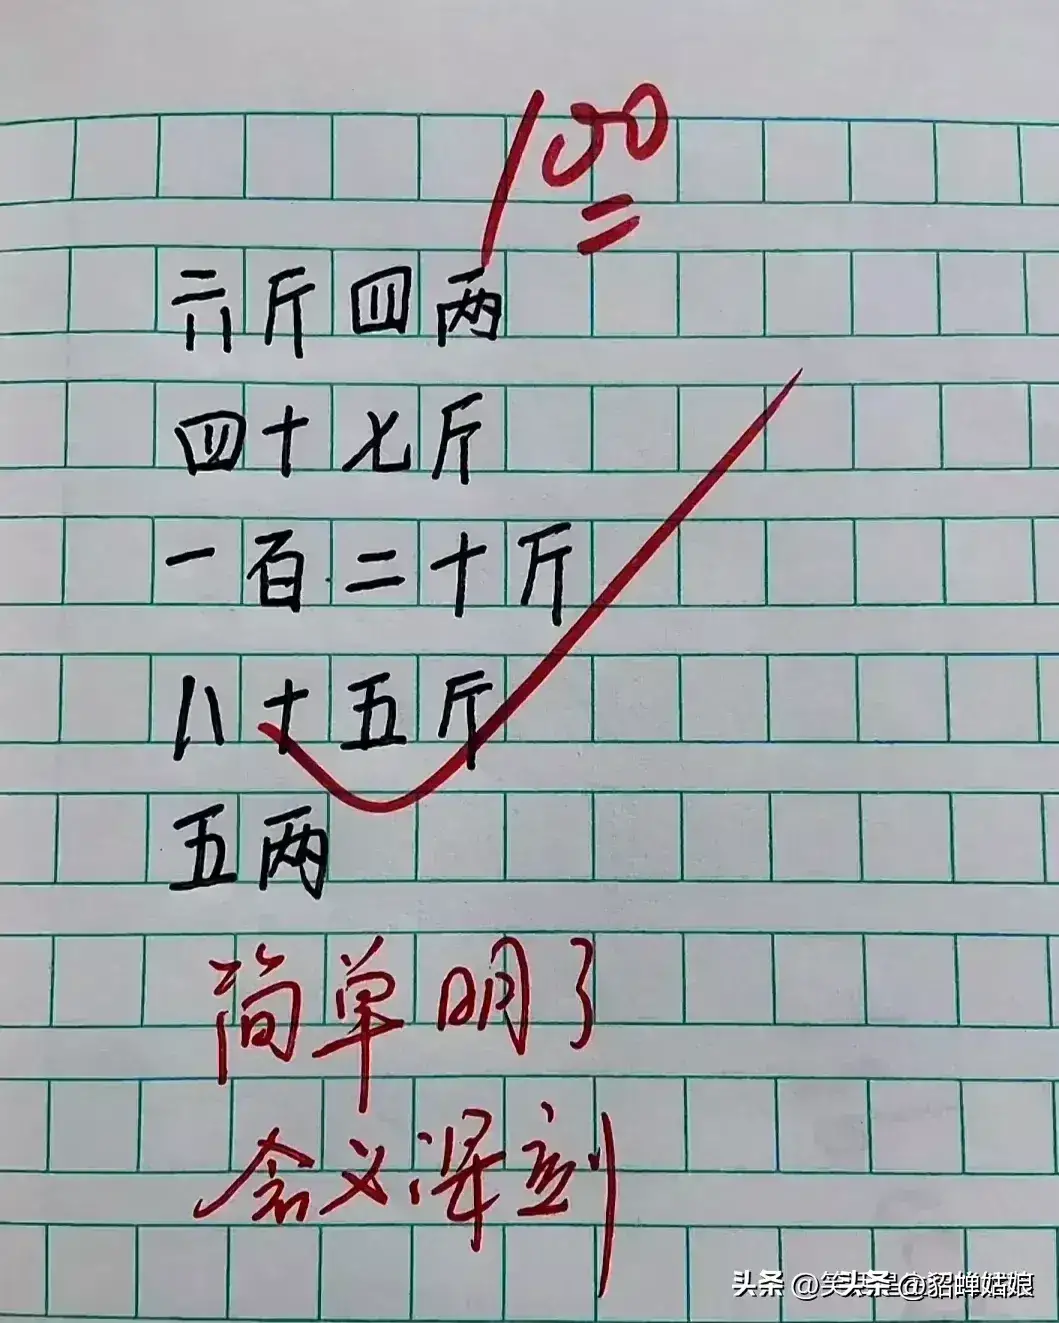 100
六斤四两
四十七斤
一百二十斤
八十五斤
五两
简单明了
含义深刻
头条 @貂蝉姑娘